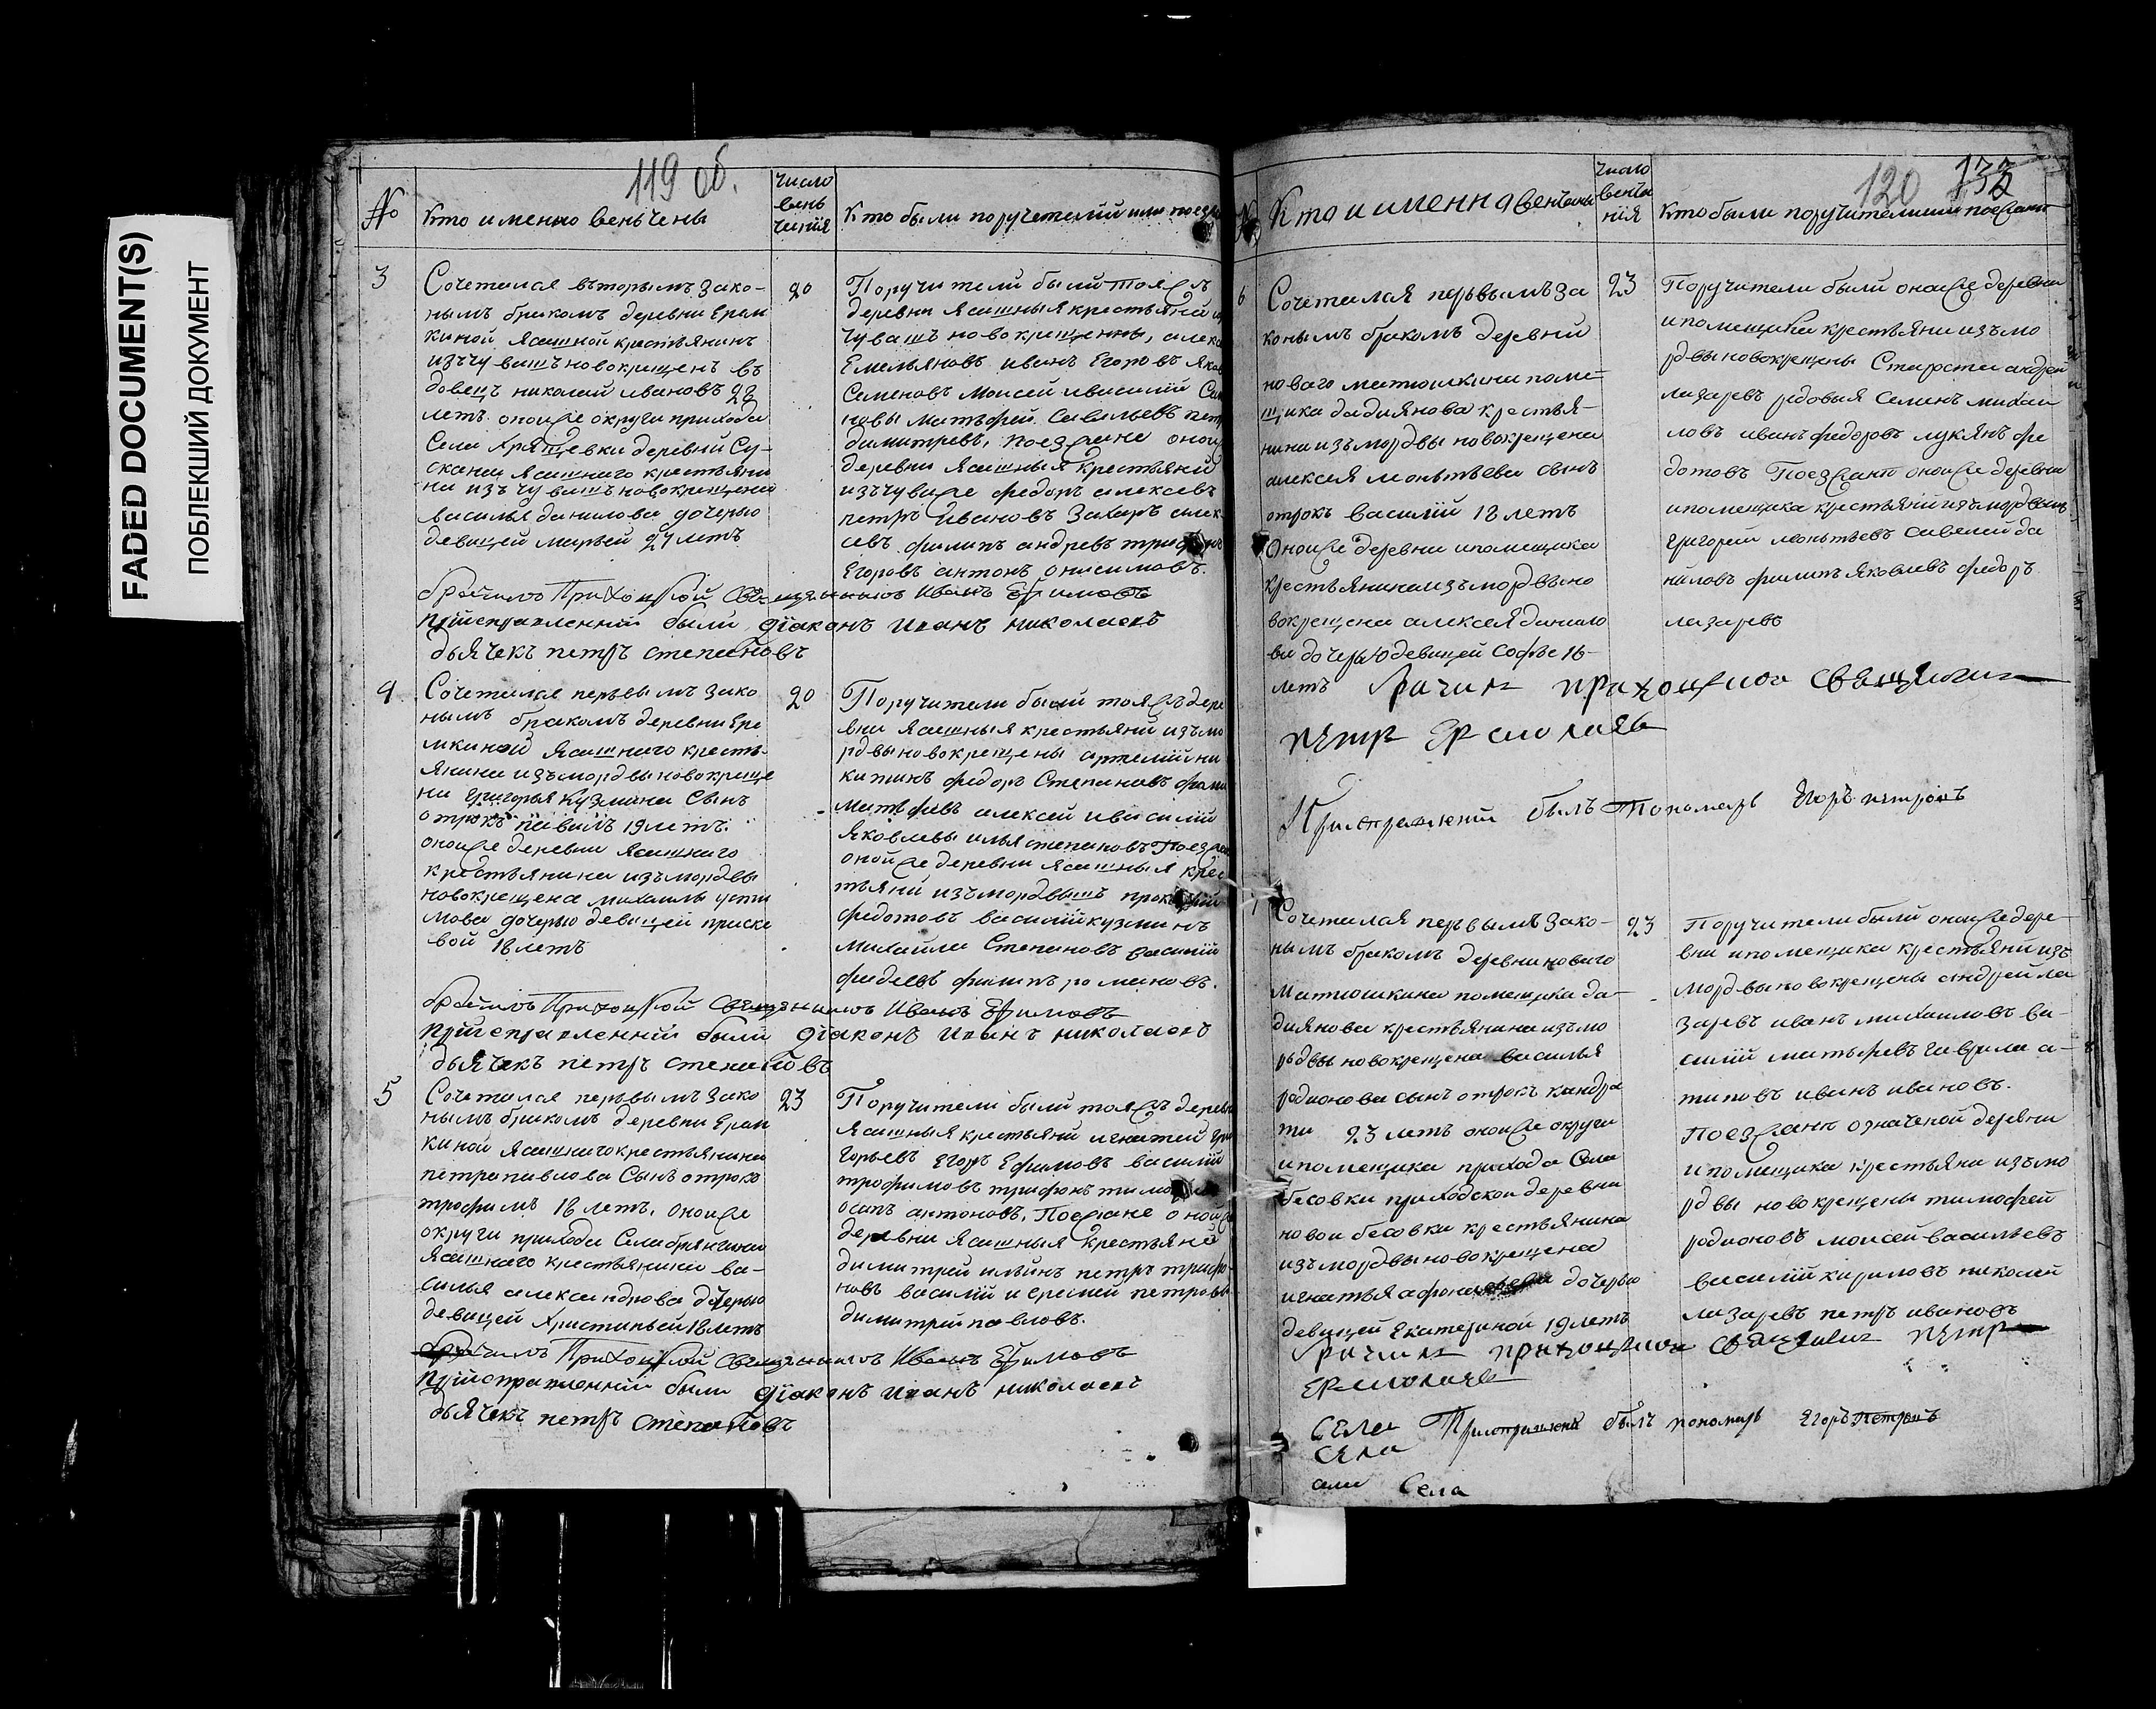 FADED DOCUMENT(S)
ПОБЛЕКШИЙ ДОКУМЕНТ
119 об.
№
Кто именно веньчены
число вень чения
Кто были поручетелий или поезж
3
Сочетался въторымъ зако-
нымъ бракомъ деревни Ерем
киной ясашной крестьянинъ
изъ чувашъ новокрещенъ въ
довецъ николай ивановъ 28
летъ оноиже округи прихода
Села хрящевки деревни Су-
сканси ясашнаго крестьяни
на изъ чувашъ новокрещена
василья данилова дочерью
девицей марьей 27 летъ
20
Поручители былй тояжъ
деревни ясашныя крестьяни
чувашъ новокрещены, алекс
Емельяновъ иванъ Егоровъ яков
Семеновъ моисей ивасилий Сем
новы матьфей Савельевъ петр
димитревъ, поезжане оной
деревни ясашныя крестьяни
изъ чуваже федоръ алексевъ
петръ ивановъ Захаръ алек
севъ филипъ андревъ
Егоровъ антонъ онисимовъ.
брачилъ Приходской Священникъ Иванъ Ефимовъ
при исправленний были дiаконъ иванъ николаевъ
дьячекъ петръ степановъ
4
Сочетался первымъ зако
нымъ бракомъ деревни Ере
мкиной ясашнаго кресть
янина изъ мордвы новокреще
на григорья кузмина Сынъ
отрокъ павилъ 19 летъ.
оноиже деревни ясашнаго
крестьянина изъ мордвы
новокрещена михаилы усти
мова дочерью девицей праске
вой 18 летъ
20
Поручители былй тояжъ дере
вни ясашныя крестьяни изъ мо
рдвы новокрещены артемий ни
китинъ федоръ Степановъ фома
матьфевъ алексей ивасилий
яковлевы илья степановъ Поезжа
онойже деревни ясашныя крес
тьяни изъ мордвышъ
федотовъ василий кузминъ
михайла Степановъ василий
фадеевъ филипъ романовъ.
брачилъ Приходской Священникъ Иванъ Ефимовъ
при исправленний были дiаконъ иванъ николаевъ
дьячекъ петръ степановъ
5
Сочетался первымъ зако
нымъ бракомъ деревни Ерем
киной ясашнаго крестьянина
петра павлова Сынъ отрокъ
трофимъ 18 летъ, оноиже
округи прихода Села брянчина
ясашнаго крестьянина ва-
силья александрова дочерью
девицей христиньей 18 летъ
23
Поручители былй тояжъ деревн
ясашныя крестьяни игнатей гри
горьевъ Егоръ Ефимовъ василий
трофимовъ трифонъ
осипъ антоновъ, Поезжане оной
деревни ясашныя крестьяне
димитрей ильинъ петръ трифо-
новъ василий и еремей петровы
димитрей павловъ.
брачилъ Приходской Священникъ Иванъ Ефимовъ
при исправленний были дiаконъ иванъ николаевъ
дьячекъ петръ Степановъ
120 133
№
Кто и именн о венчены
число венча ния
Кто были поручители или поезжант
6
Сочетался первымъ за
конымъ бракомъ деревни
новаго матюшкина поме-
щика дадиянова крестья-
нина изъ мордвы новокрещена
алексея моньтьева сынъ
отрокъ василий 18 летъ
Оноиже деревни и помещика
крестьянина изъ мордвы но
вокрещена алексея данило
ва дочерью девицей Софье 16-
летъ
23
Поручители были оноиже деревни
и помещика крестьяни изъ мо
рдвы новокрещены Староста андрей
лазаревъ рядовыя Семенъ михаи
ловъ иванъ федоровъ лукянъ фе
дотовъ Поезжант оноиже деревни
и помещика крестьяни изъ мордвышъ
григорей моньтьевъ савелей да
ниловъ филипъ яковлевъ федоръ
лазаревъ
брачилъ приходцкои священик
петръ Ермолаевъ
При исправлении былъ Пономарь Егоръ петровъ
7
Сочетался первымъ зако-
нымъ бракомъ деревни новаго
матюшкина помещика да-
диянова крестьянина изъ мо
рдвы новокрещена василья
родионова сынъ отрокъ кандра
ти 23 летъ оноиже округи
и помещика прихода Села
бесовки приходской деревни
новои бесовки крестьянина
изъ мордвы новокрещена
игнатья дочерью
девицей Екатериной 19 летъ
23
Поручители былй оноиже дере-
вни и помещика крестьяни изъ
мордвы новокрещены андрей ла
заревъ иванъ михаиловъ ва-
силий матьфевъ гаврила а-
типовъ иванъ ивановъ.
Поезжант означеной деревни
и помещика крестьяни изъ мо
рдвы новокрещены тимофей
родионовъ моисей васильевъ
василий кириловъ николай
лазаревъ петръ ивановъ
брачилъ приходцкои священик петръ
Ермолаевъ
Села При исправлении былъ пономарь Егоръ Петровъ
Села
Села